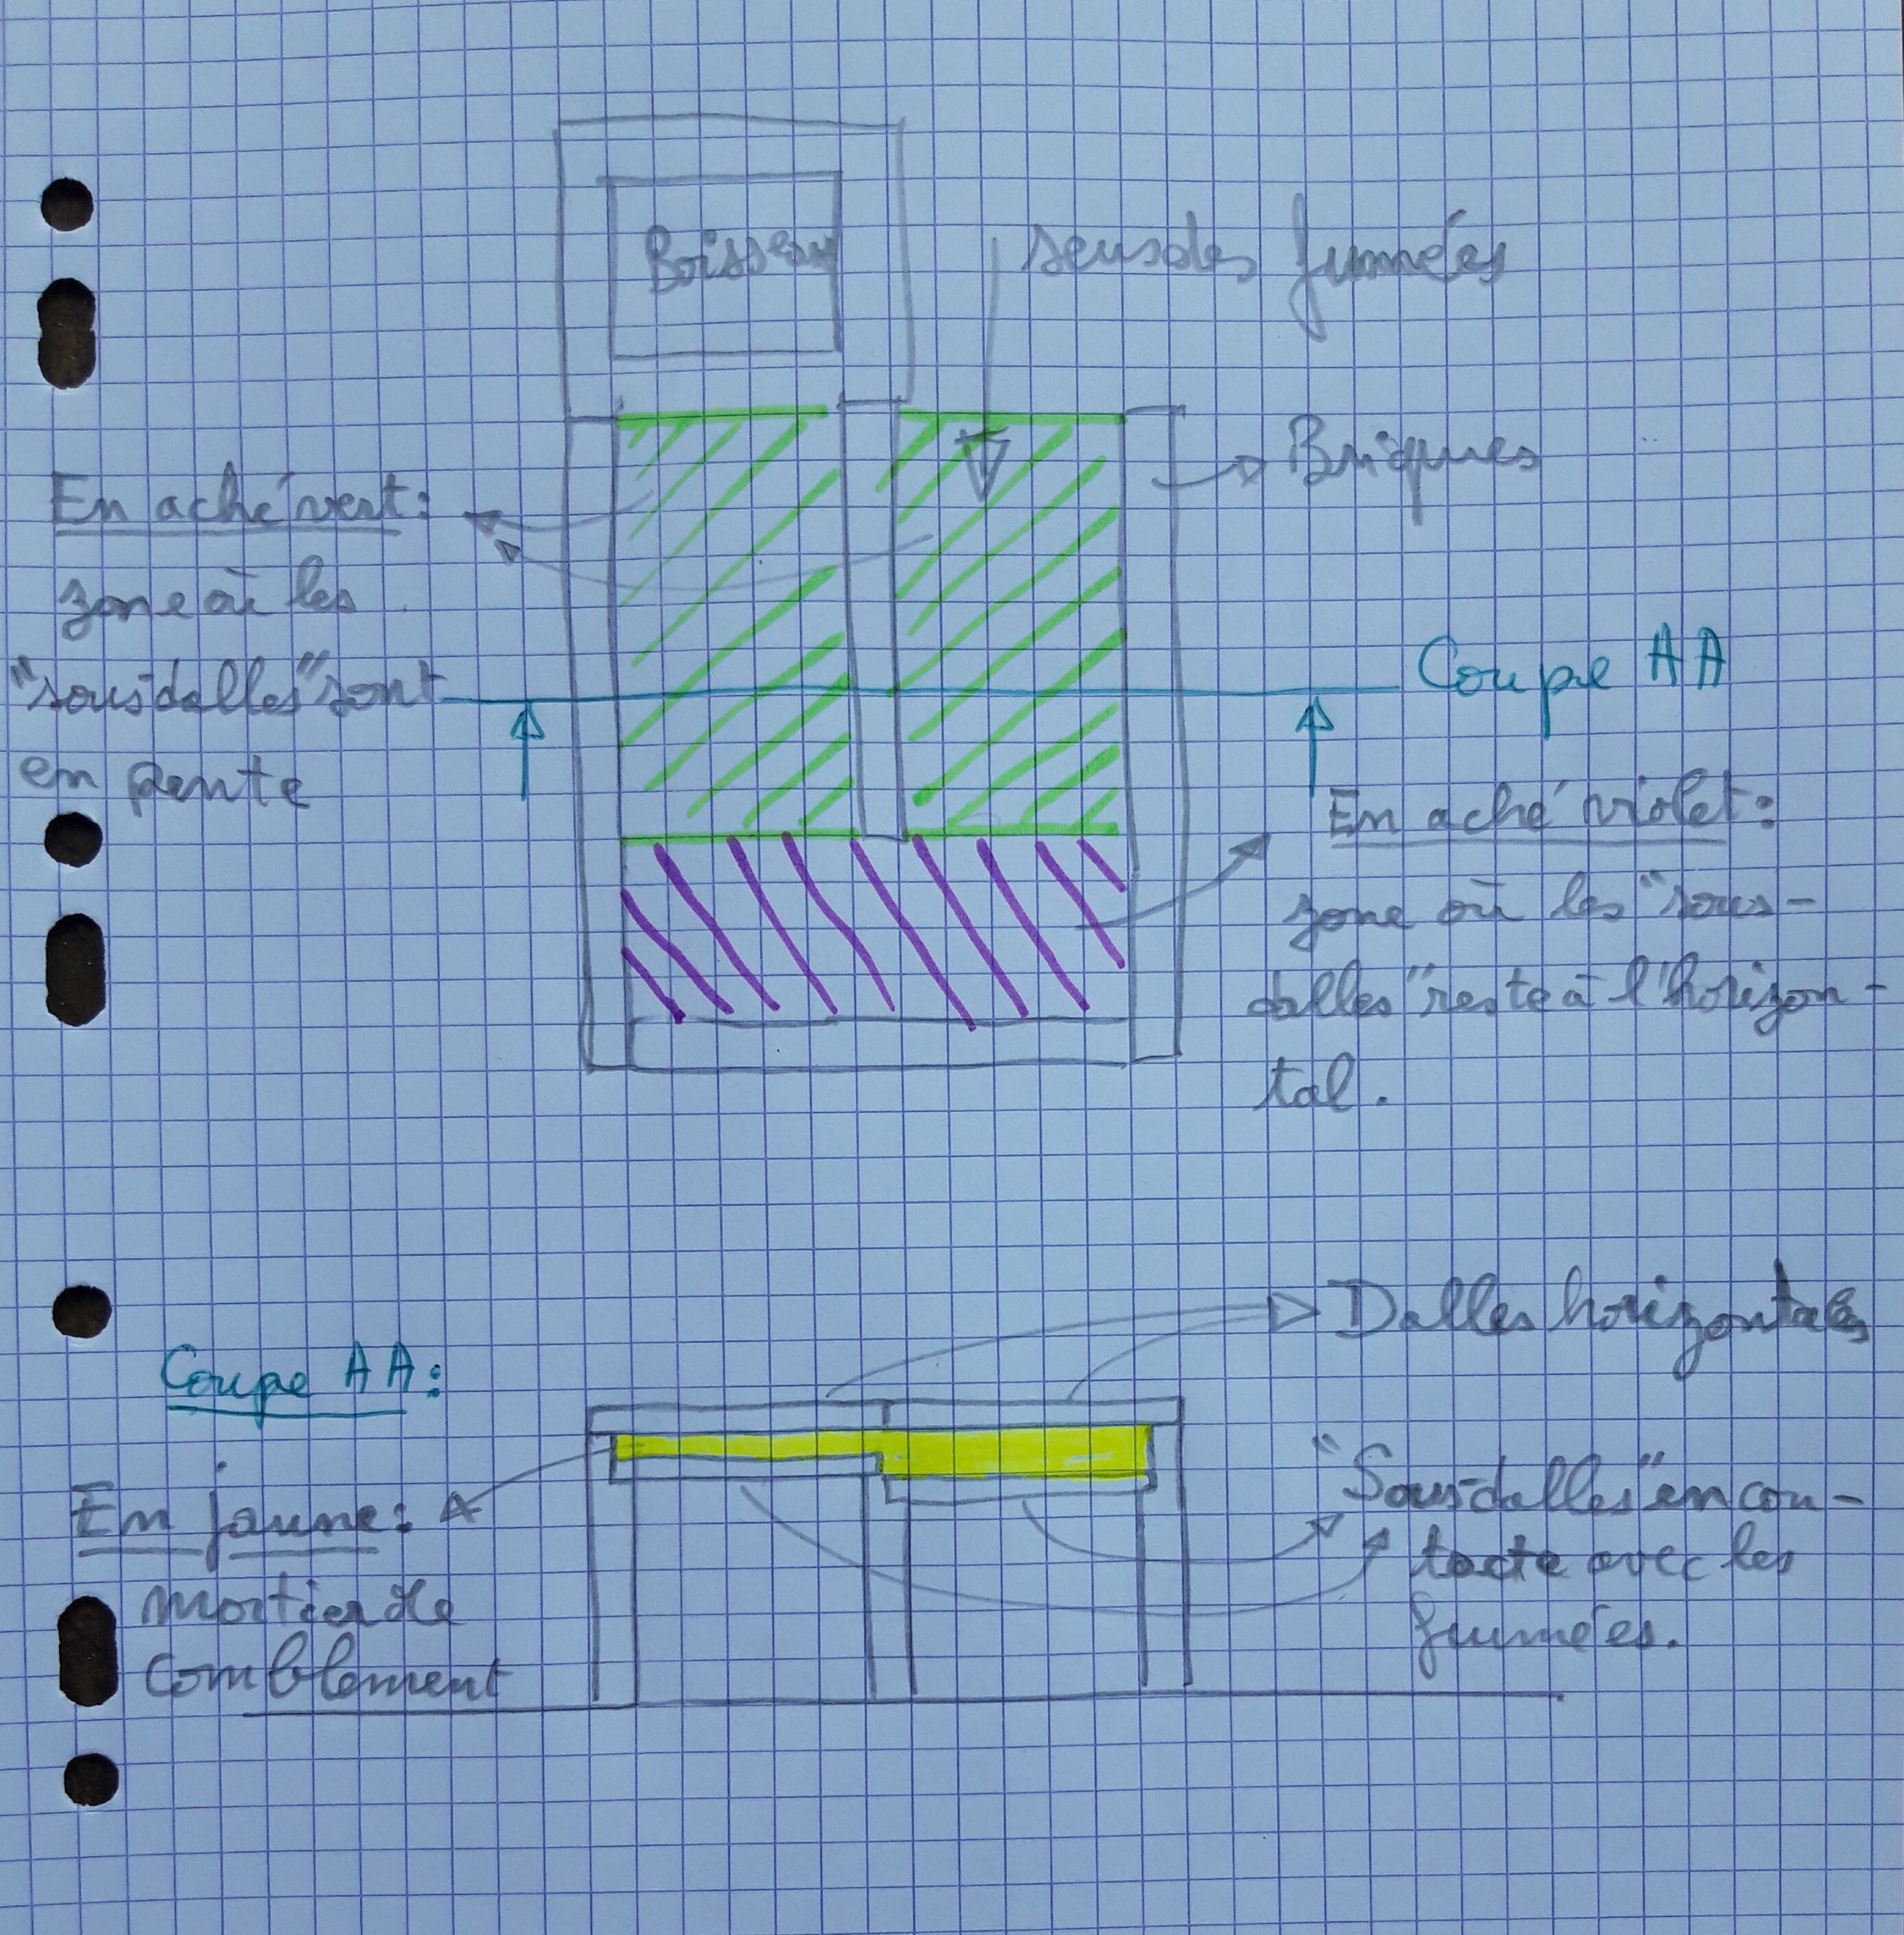 Boisseau
sens des fumées
Briques
En aché vert:
zone où les
"sous dalles" sont
en pente
Coupe AA
En aché violet:
zone où les "sous-
dalles" reste à l'horizon-
tal.
Dalles horizontales
Coupe AA:
En jaune:
mortier de
comblement
"Sous dalles" en con-
tacte avec les
fumées.